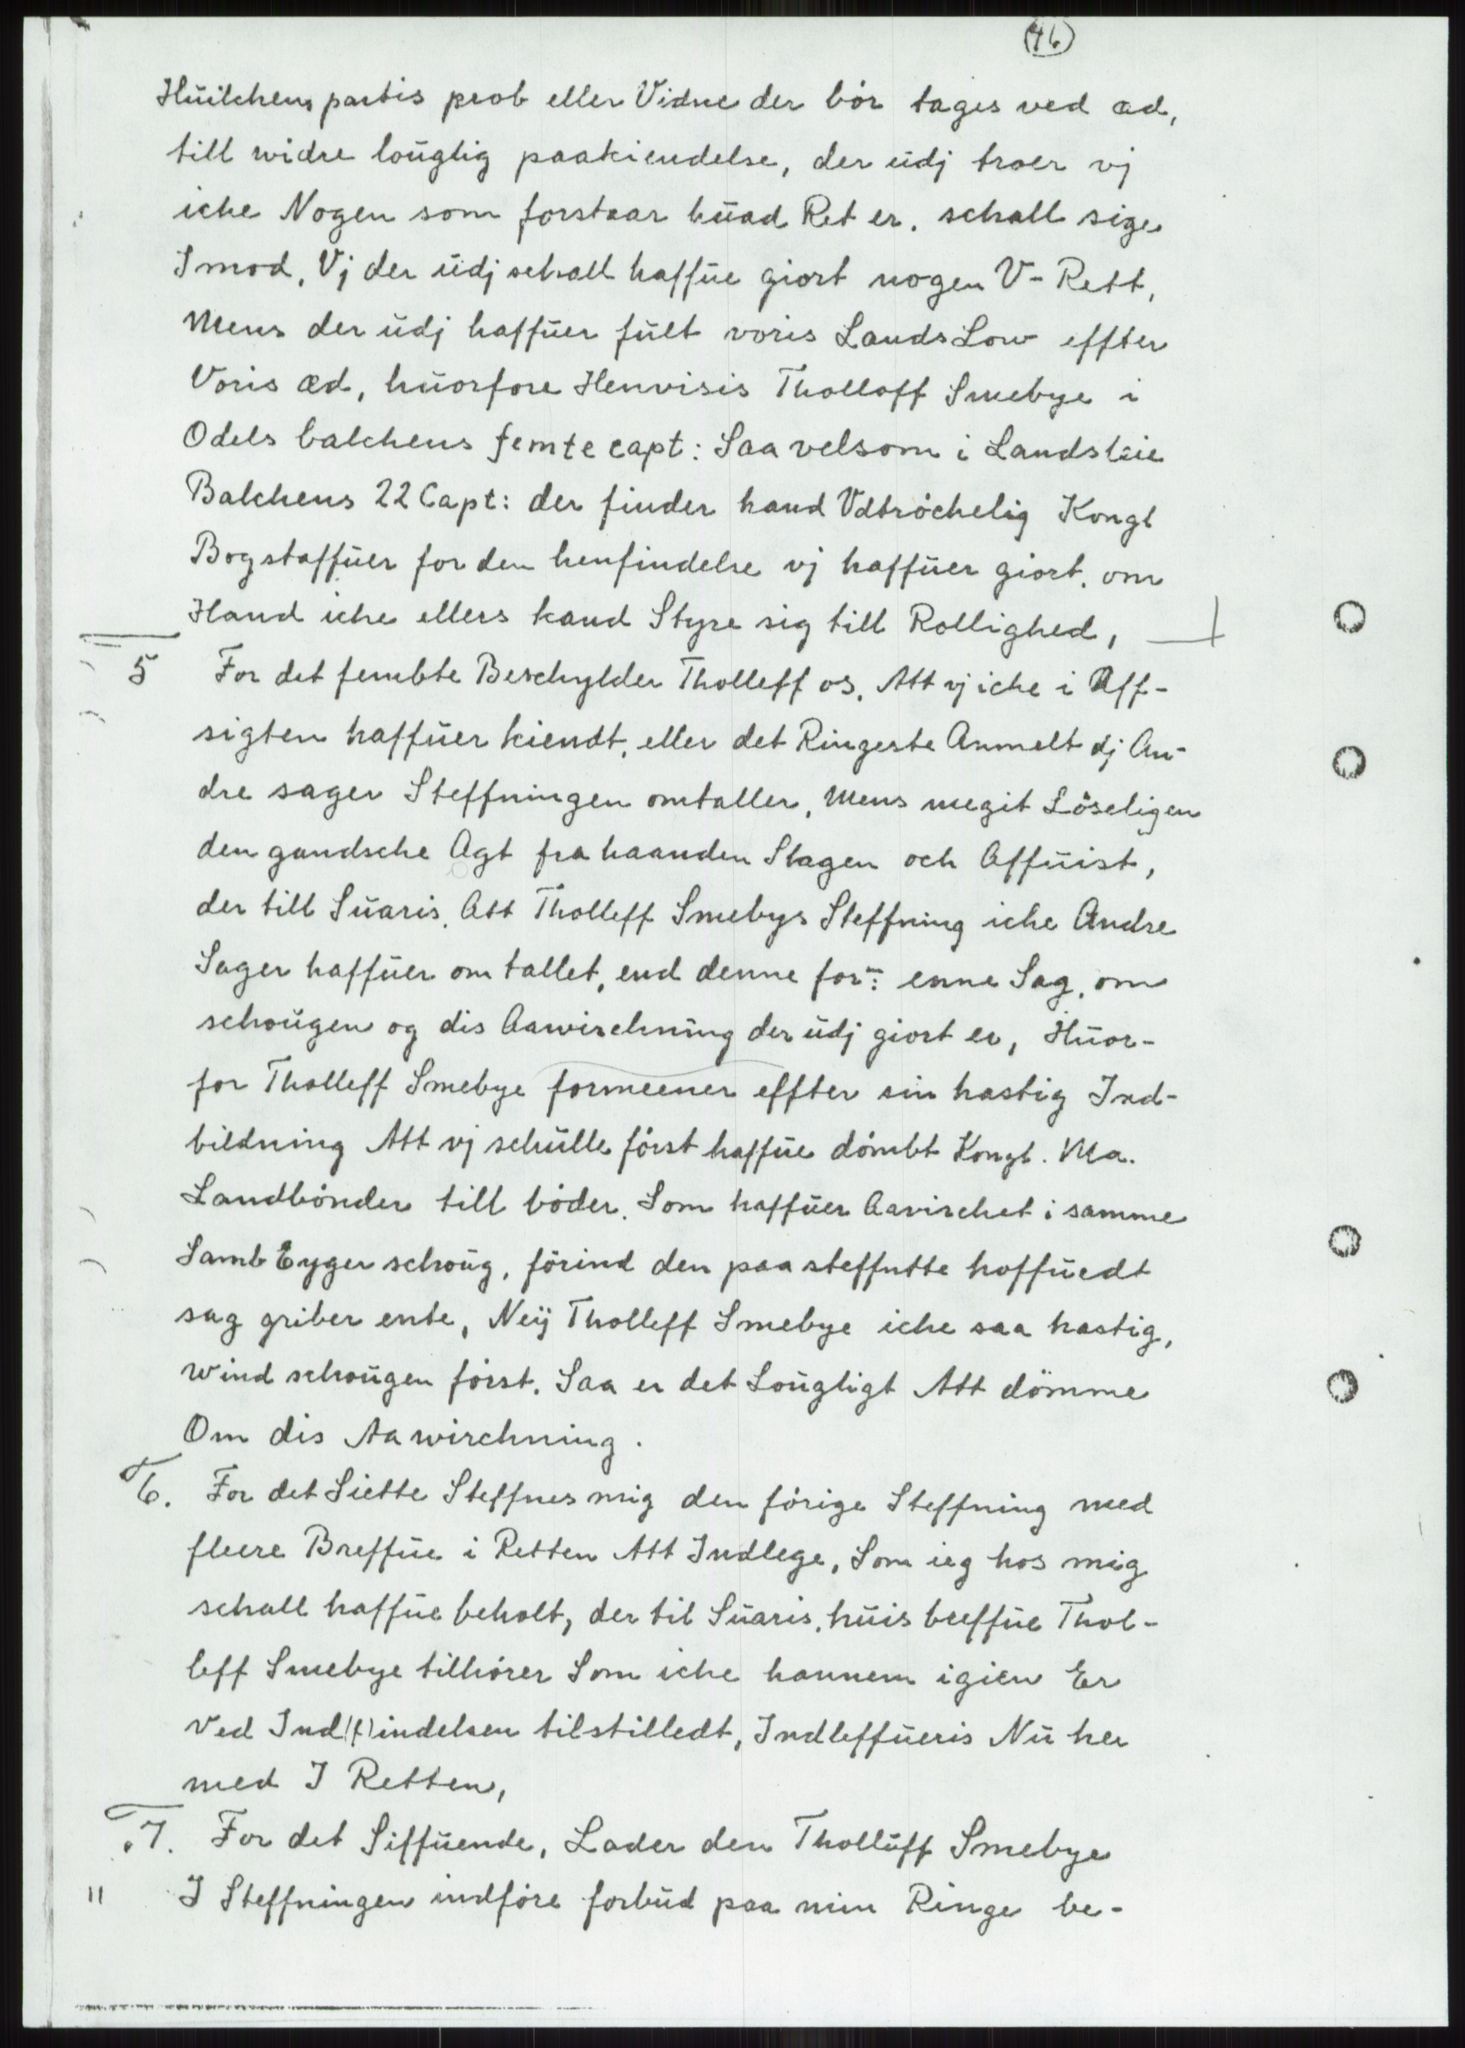 (46)
Huilchens partis prob eller Vidne der bór tages ved æd,
till widre louglig paakiendelse, der udj troer vj
iche Nogen som forstaar huad Ret er. schall sige
Imod, Vj der udj schall haffue giort nogen V-Rett,
Mens der udj haffuer fult voris Lands Low effter
Voris æd, huorfore Henvisis Tholloff Smebye i
Odels balchens femte capt: Saa velsom i Landsleie
Balchens 22 Capt: der finder hand Vdtróchelig Kongl
Bogstaffuer for den henfindelse vj haffuer giort, om
Hand iche ellers kand Styre sig till Rollighed,
5 For det fembte Beschylder Tholleff os, Att vj iche i Aff-
sigten haffuer kiendt, eller det Ringeste Anmelt dj An-
dre sager Steffningen omtaller, Mens megit Lóseligen
den gandsche Agt fra haanden Slagen och Affuist,
der till Suaris, Att Tholleff Smebys Steffning iche Andre
Sager haffuer omtallet, end denne for=: enne Sag, om
schougen og dis Aawirchning der udj giort er, Huor-
for Tholleff Smebye formeener effter sin hastig Ind-
bildning Att vj schulle fórst haffue dómbt Kongl. Ma.
Landbónder till bóder. Som haffuer Aavirchet i samme
Samb Eyger schoug, fórind den paasteffntte hoffuedt
sag griber ente, Neij Tholleff Smebye iche saa hastig,
Wind schougen fórst. Saa er det Lougligt Att dömme
Om dis Aawirchning.
6. For det Siette Steffnes mig den fórige Steffning med
fleere Breffue i Retten Att Indlege, Som ieg hos mig
schall haffue beholt, der til Suaris, huis breffue Thol-
leff Smebye tilhórer Som iche hannem igien Er
Ved Ind(f)indelsen tilstilledt, Indleffueris Nu her
med I Retten,
7. For det Siffuende, Lader den Tholluff Smebye
" I Steffningen indfóre forbud paa min Ringe be-